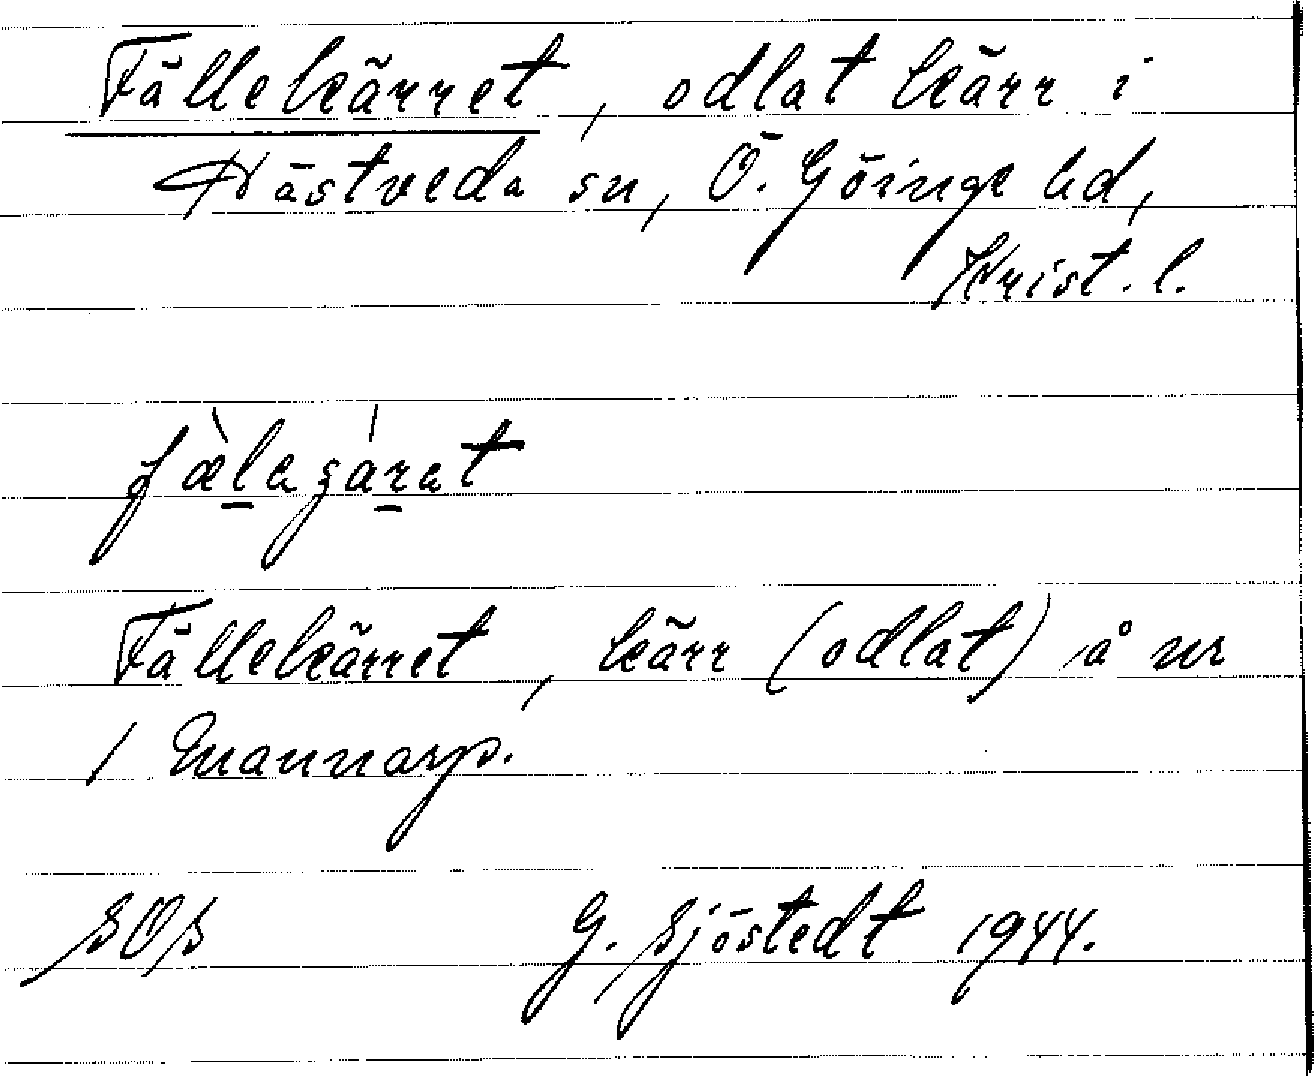 Fällekärret, odlat kärr i
Nästveda sn, Ö. Göinge hd,
Krist. l.
fælaʒárat
Fällekärret, kärr (odlat) å nr
1 Mannarp.
SOS G. Sjöstedt 1944.